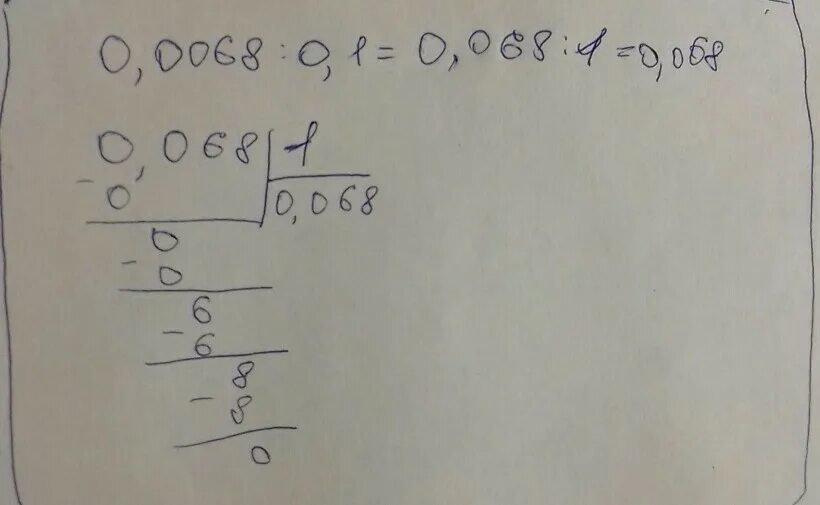 0,0068 : 0,1 = 0,068 : 1 = 0,068
0,068 | 1
- 0 | 0,068
0
- 0
6
- 6
8
- 8
0